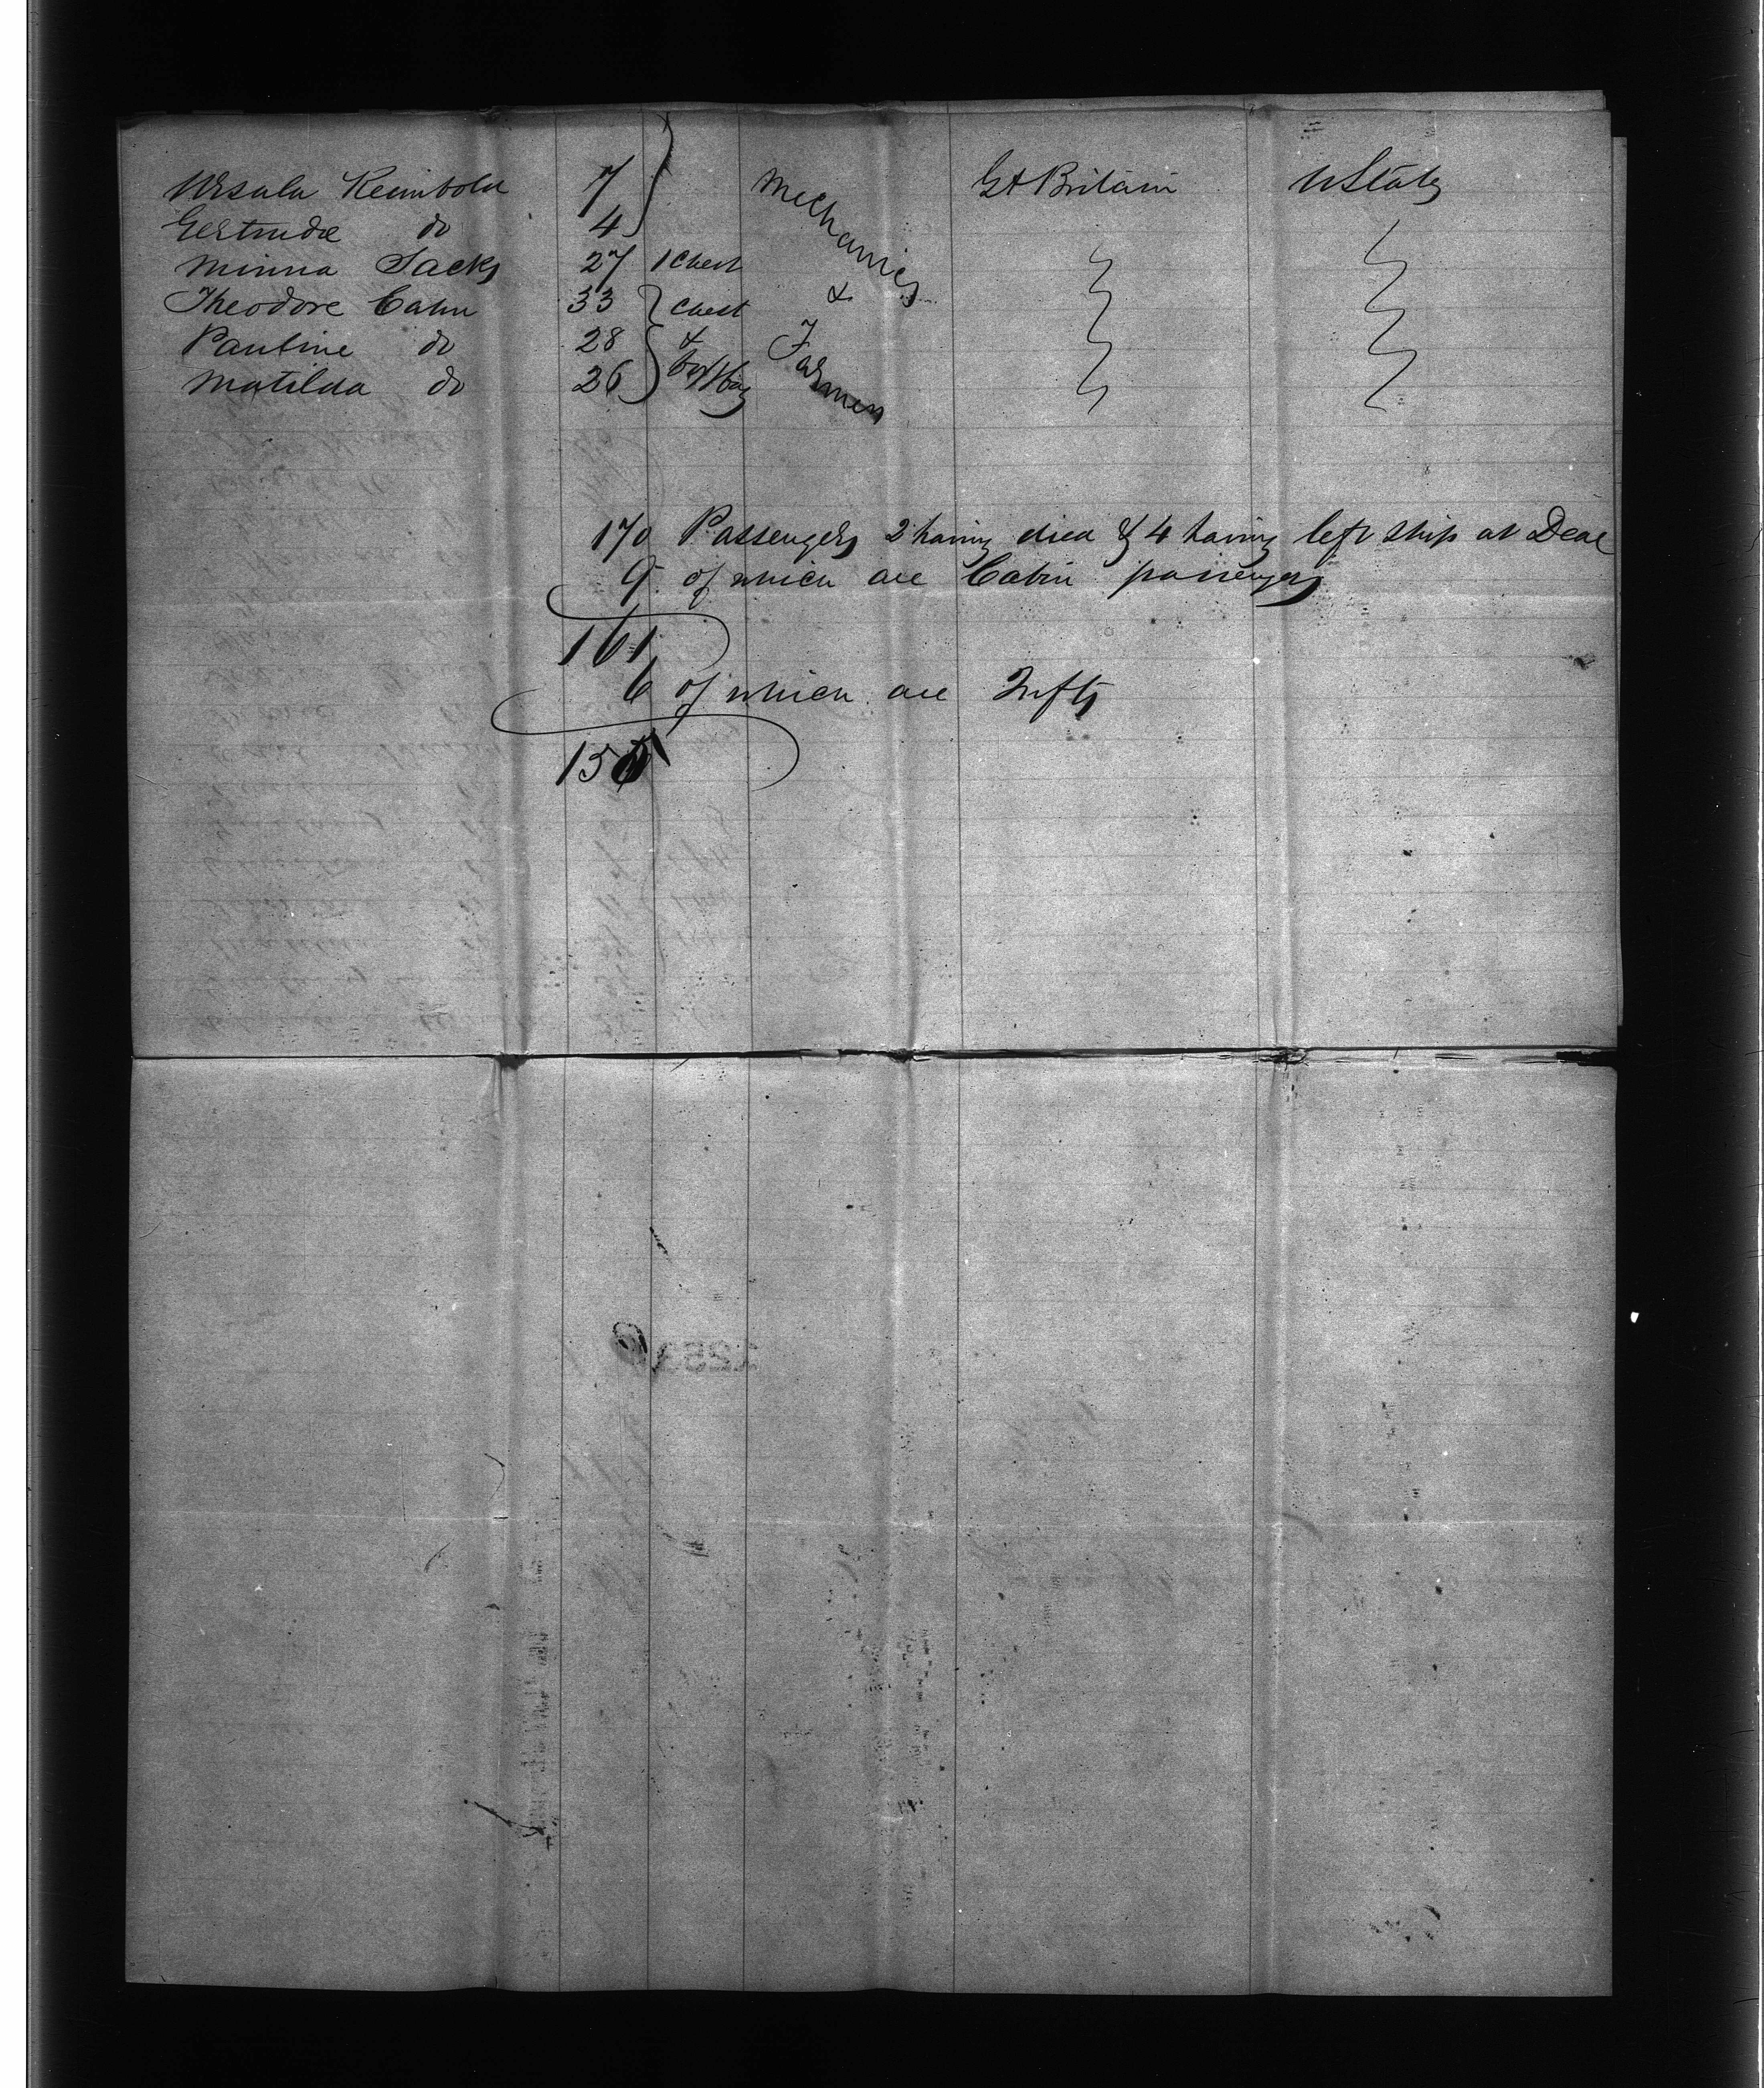 Ursula Reimbold 7 Mechanics Gt Britain U States
Gertrude do 4
Minna Sacks 27 1 Chest
Theodore Cahn 33 Chest &
Pauline do 28 & Farmers
Matilda do 26
170 Passengers 2 having died & 4 having left ship at Deal
9 of which are Cabin passengers
161
6 of which are Infts
155